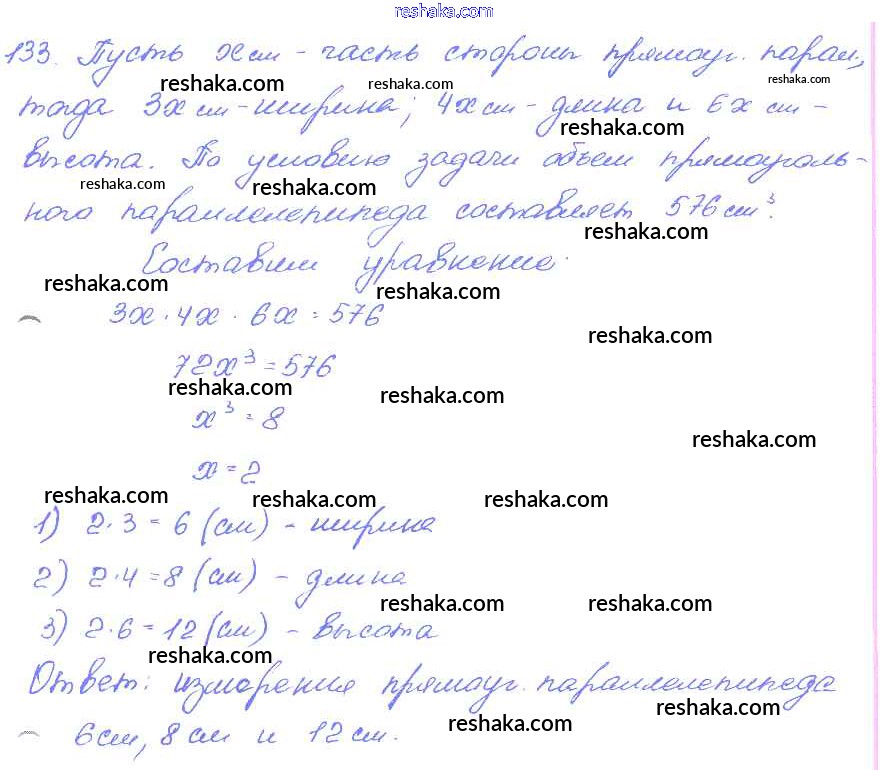 reshaka.com
133. Пусть x см - часть стороны прямоуг. парал.,
reshaka.com reshaka.com reshaka.com
тогда 3x см - ширина; 4x см - длина и 6x см -
reshaka.com
высота. По условию задачи объем прямоуголь-
reshaka.com reshaka.com
ного параллелепипеда составляет 576 см³.
reshaka.com
Составим уравнение:
reshaka.com reshaka.com
3x · 4x · 6x = 576
reshaka.com
72x³ = 576
reshaka.com reshaka.com
x³ = 8
reshaka.com
x = 2
reshaka.com reshaka.com reshaka.com
1) 2·3 = 6 (см) - ширина
2) 2·4 = 8 (см) - длина
reshaka.com reshaka.com
3) 2·6 = 12 (см) - высота
reshaka.com
Ответ: измерения прямоуг. параллелепипеда
reshaka.com reshaka.com
6 см, 8 см и 12 см.